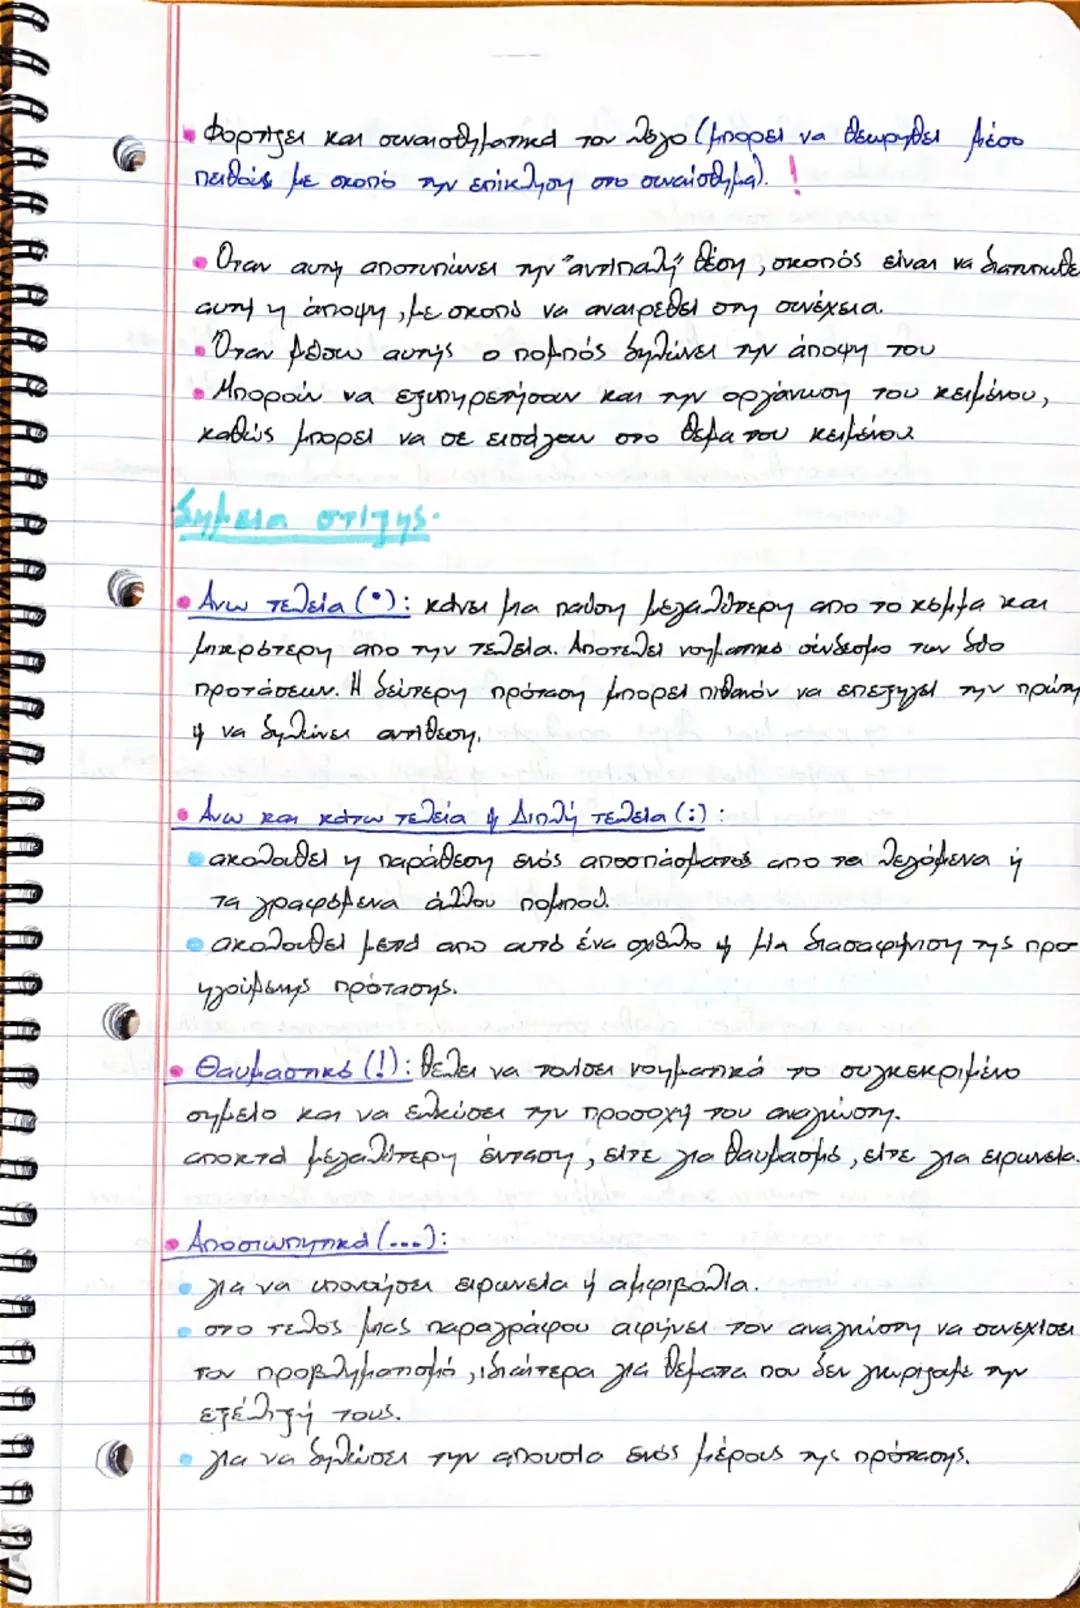 • Φορτίζει και συναισθηματικά τον λόγο (μπορεί να θεωρηθεί μέσο
πειθούς με σκοπό την επίκληση στο συναίσθημα). !
• Όταν αυτή αποτυπώνει την "αντίπαλη" θέση, σκοπός είναι να διατυπωθε
αυτή η άποψη, με σκοπό να αναιρεθεί στη συνέχεια.
• Όταν μέσω αυτής ο πομπός δηλώνει την άποψη του
• Μπορούν να εξυπηρετήσουν και την οργάνωση του κειμένου,
καθώς μπορεί να σε εισάγουν στο θέμα του κειμένου.
Σημεία στίξης.
• Άνω τελεία (·): κάνει μια παύση μεγαλύτερη απο το κόμμα και
μικρότερη απο την τελεία. Αποτελεί νοηματικό σύνδεσμο των δύο
προτάσεων. Η δεύτερη πρόταση μπορεί πιθανόν να επεξηγεί την πρώτη
ή να δηλώνει αντίθεση.
• Άνω και κάτω τελεία ή Διπλή τελεία (:) :
• ακολουθεί η παράθεση ενός αποσπάσματος απο τα λεγόμενα ή
τα γραφόμενα άλλου πομπού.
• ακολουθεί μετά απο αυτό ένα σχόλιο ή μία διασαφήνιση της προ
ηγούμενης πρότασης.
• Θαυμαστικό (!): θέλει να τονίσει νοηματικά το συγκεκριμένο
σημείο και να ελκύσει την προσοχή του αναγνώστη.
αποκτά μεγαλύτερη ένταση, είτε για θαυμασμό, είτε για ειρωνεία.
• Αποσιωπητικά (...):
• για να υπονοήσει ειρωνεία ή αμφιβολία.
• στο τέλος μιας παραγράφου αφήνει τον αναγνώστη να συνεχίσει
τον προβληματισμό, ιδιαίτερα για θέματα που δεν γνωρίζαμε την
εξέλιξή τους.
• για να δηλώσει την απουσία ενός μέρους της πρότασης.